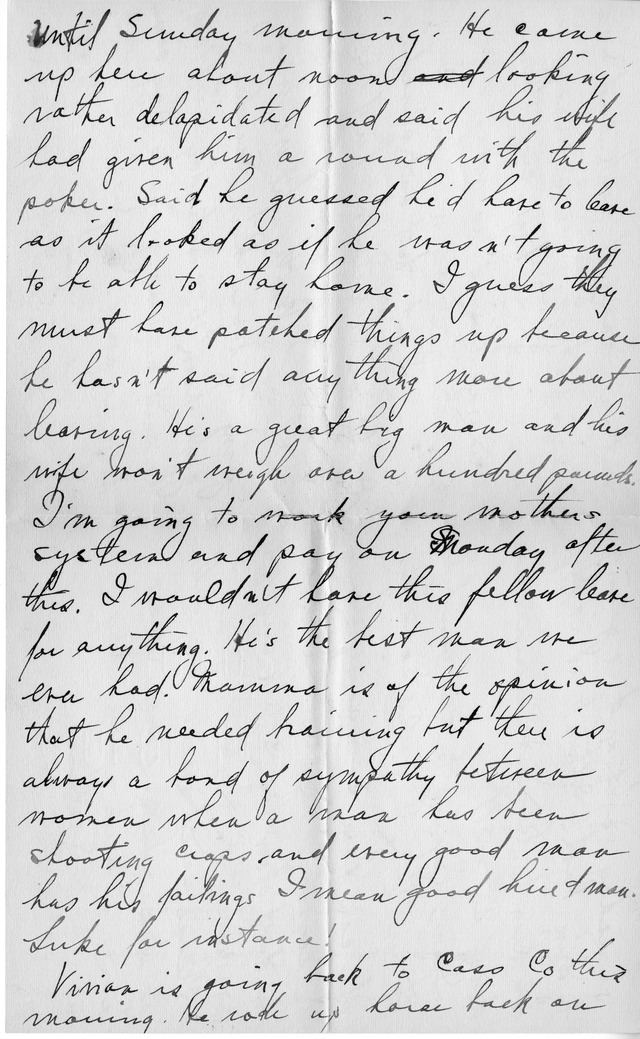 until Sunday morning. He came
up here about noon and looking
rather delapidated and said his wife
had given him a round with the
poker. Said he guessed he'd have to leave
as it looked as if he wasn't going
to be able to stay home. I guess they
must have patched things up because
he hasn't said anything more about
leaving. He's a great big man and his
wife won't weigh over a hundred pounds.
I'm going to work your mothers
system and pay on Monday after
this. I wouldn't have this fellow leave
for anything. He's the best man we
ever had. Mamma is of the opinion
that he needed training but there is
always a bond of sympathy between
women when a man has been
shooting craps, and every good man
has his failings I mean good hired man.
Luke for instance!
Vivian is going back to Cass Co this
morning. He rode up horse back on